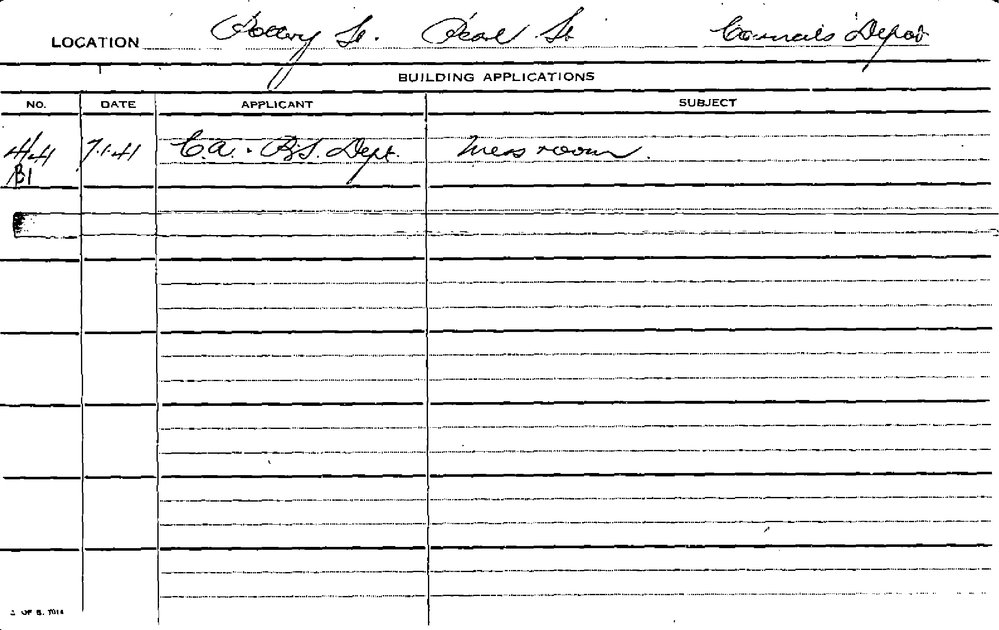 LOCATION Pottery St. Pearl St Council's Depot
BUILDING APPLICATIONS
NO. DATE APPLICANT SUBJECT
4/41 7.1.41 C.A. - R.S. Dept. Mess room.
B1